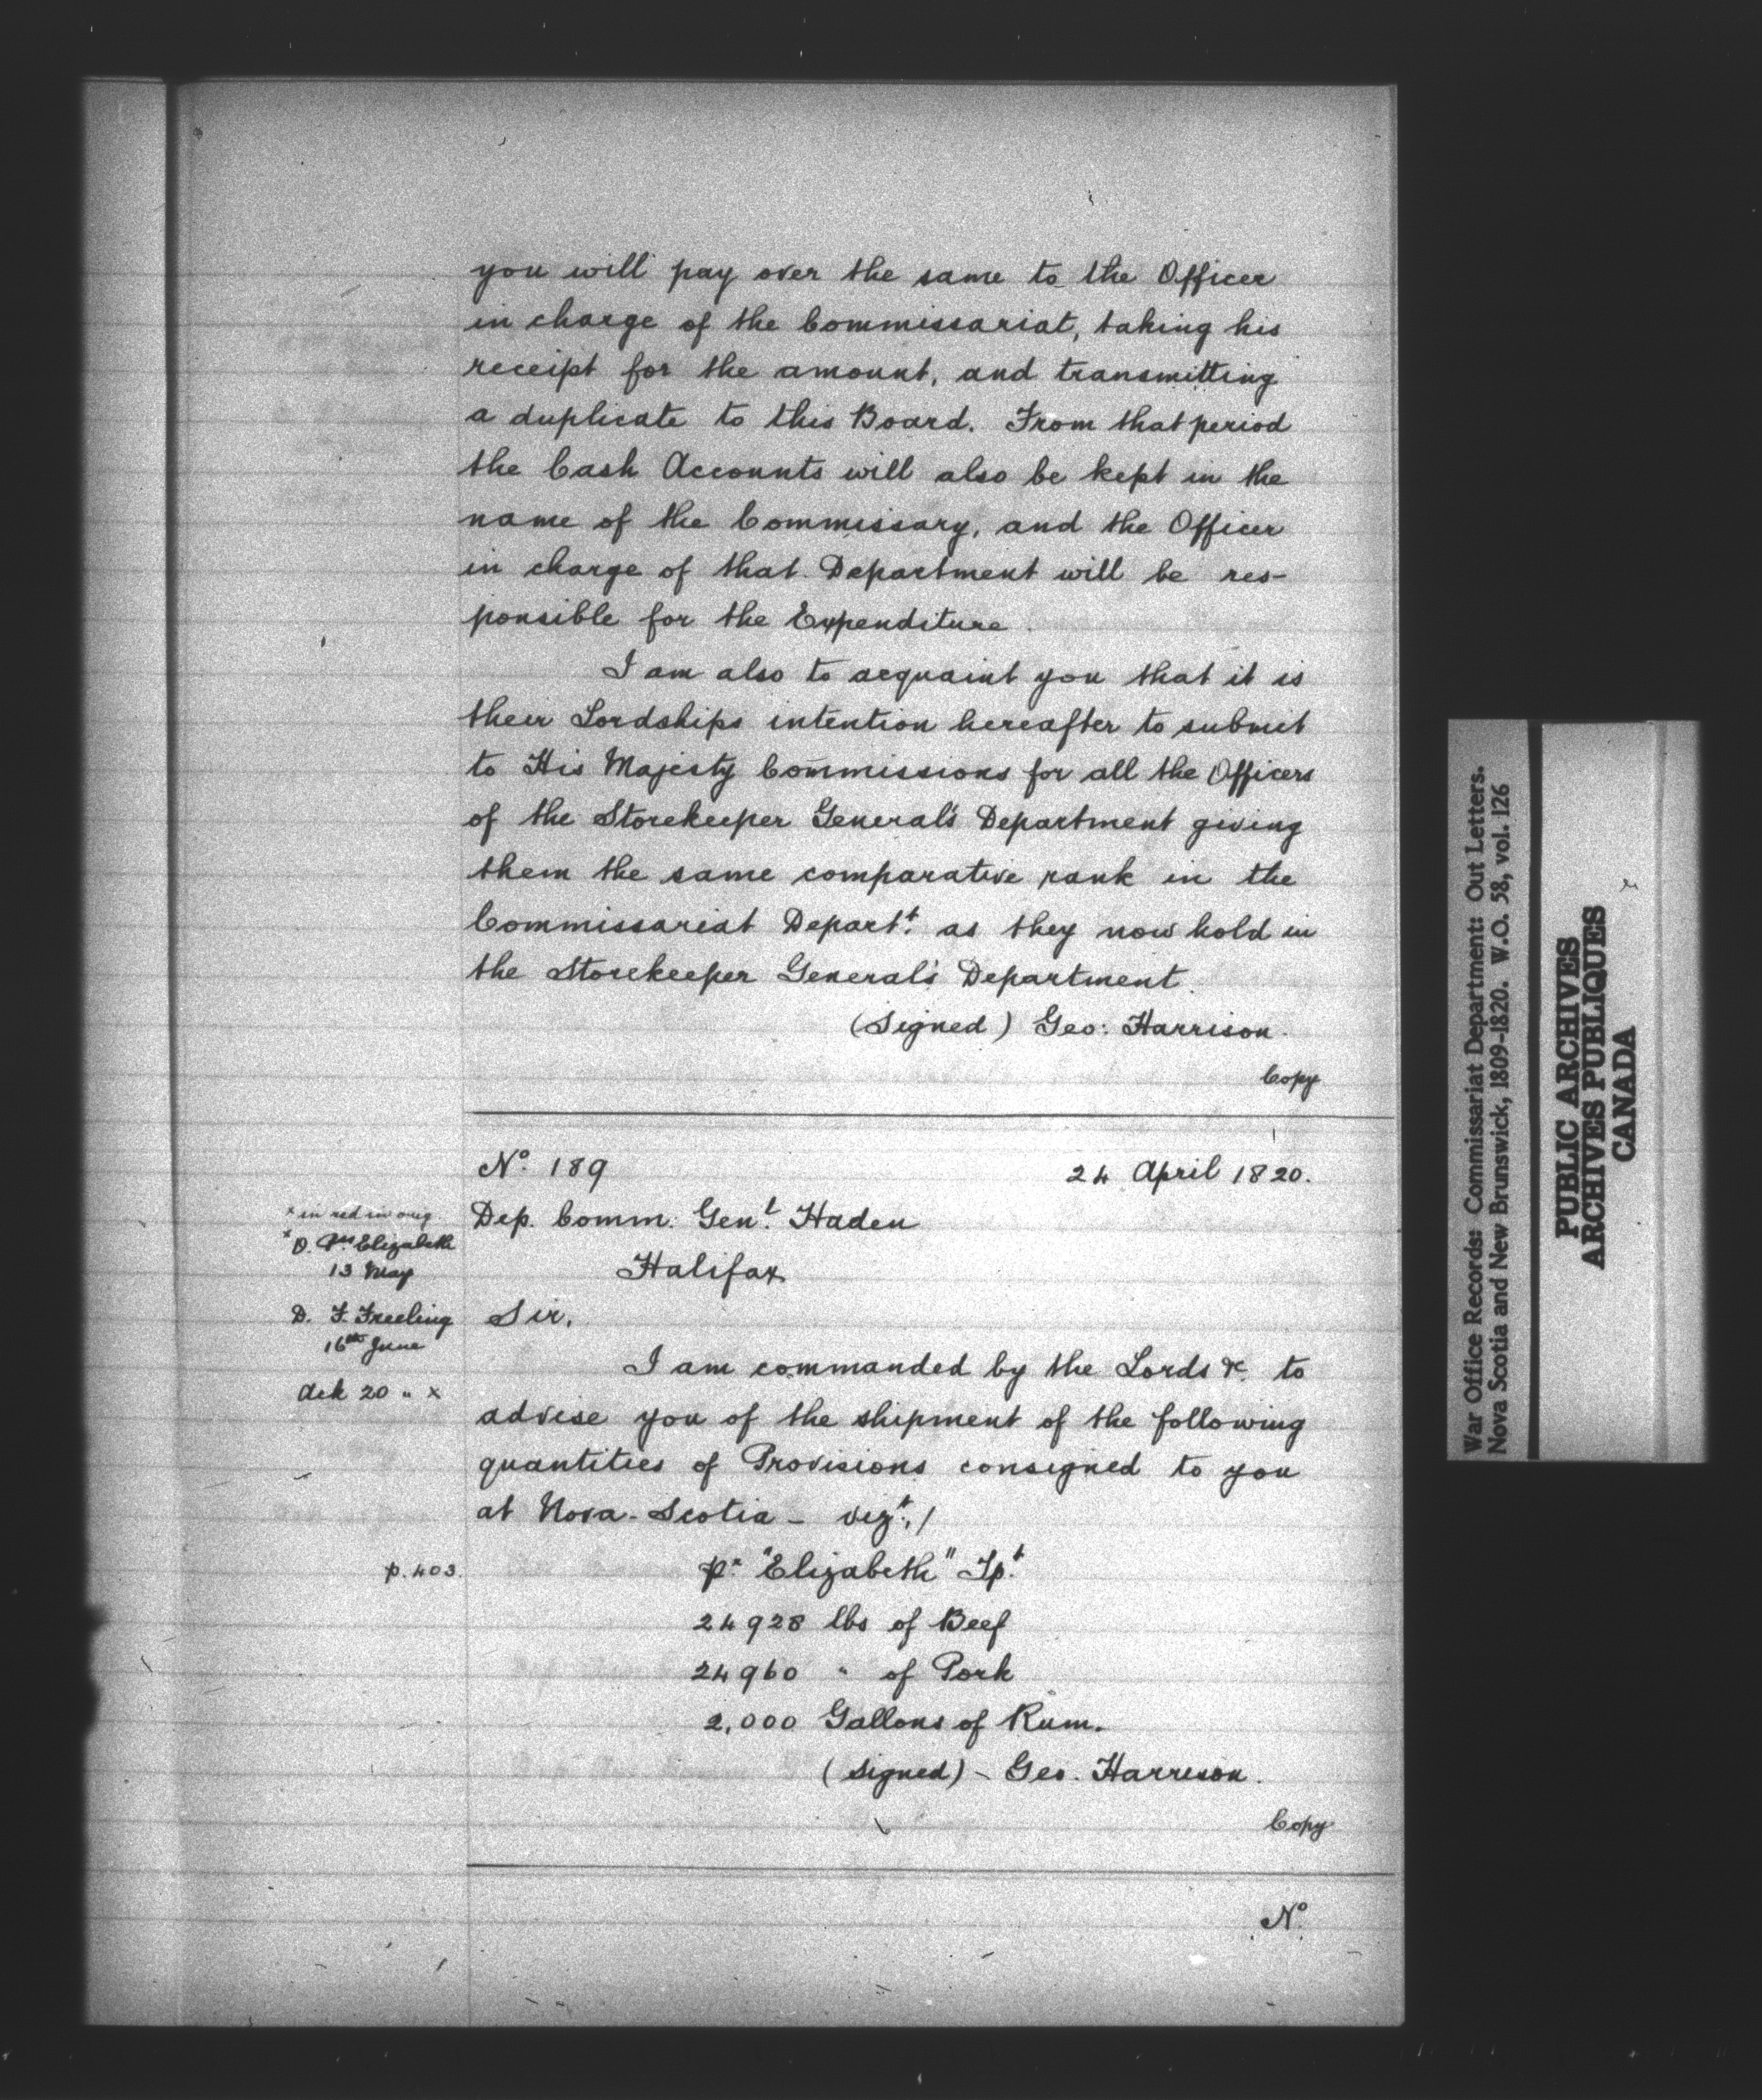 you will pay over the same to the Officer
in charge of the Commissariat, taking his
receipt for the amount, and transmitting
a duplicate to this Board. From that period
the Cash Accounts will also be kept in the
name of the Commissary, and the Officer
in charge of that Department will be res-
ponsible for the Expenditure.
I am also to acquaint you that it is
their Lordships intention hereafter to submit
to His Majesty Commissions for all the Officers
of the Storekeeper General's Department giving
them the same comparative rank in the
Commissariat Depart.t as they now hold in
the Storekeeper General's Department.
(Signed) Geo: Harrison.
Copy
No. 189
24 April 1820.
x in red in orig.
Dep. Comm. Gen.l Haden
x D. Pr Elizabeth
13 May
Halifax
D. F. Freeling
16th June
Sir,
I am commanded by the Lords &c. to
Ack 20 " x
advise you of the shipment of the following
quantities of Provisions consigned to you
at Nova-Scotia - vizt./
p. 403.
pr. "Elizabeth" Tp.t
24928 lbs of Beef
24960 " of Pork
2,000 Gallons of Rum.
(signed) - Geo. Harrison.
Copy
No.
War Office Records: Commissariat Department: Out Letters.
Nova Scotia and New Brunswick, 1809-1820. W.O. 58, vol. 126
PUBLIC ARCHIVES
ARCHIVES PUBLIQUES
CANADA